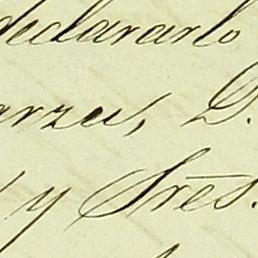 declararlo
arzu, D.
y Sres.